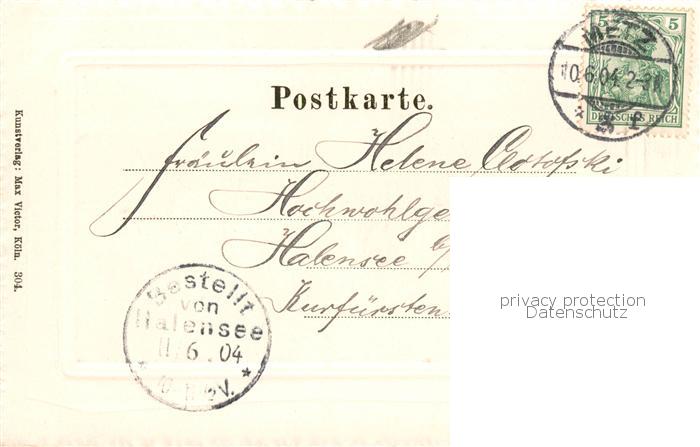 5 5
METZ
10.6.04.2-3N
DEUTSCHES REICH
Postkarte.
Fräulein Helene
Hochwohlge
Halensee b/
Kurfürsten
Kunstverlag: Max Victor, Köln. 304.
Bestellt
von
Halensee
11.6.04
privacy protection
Datenschutz